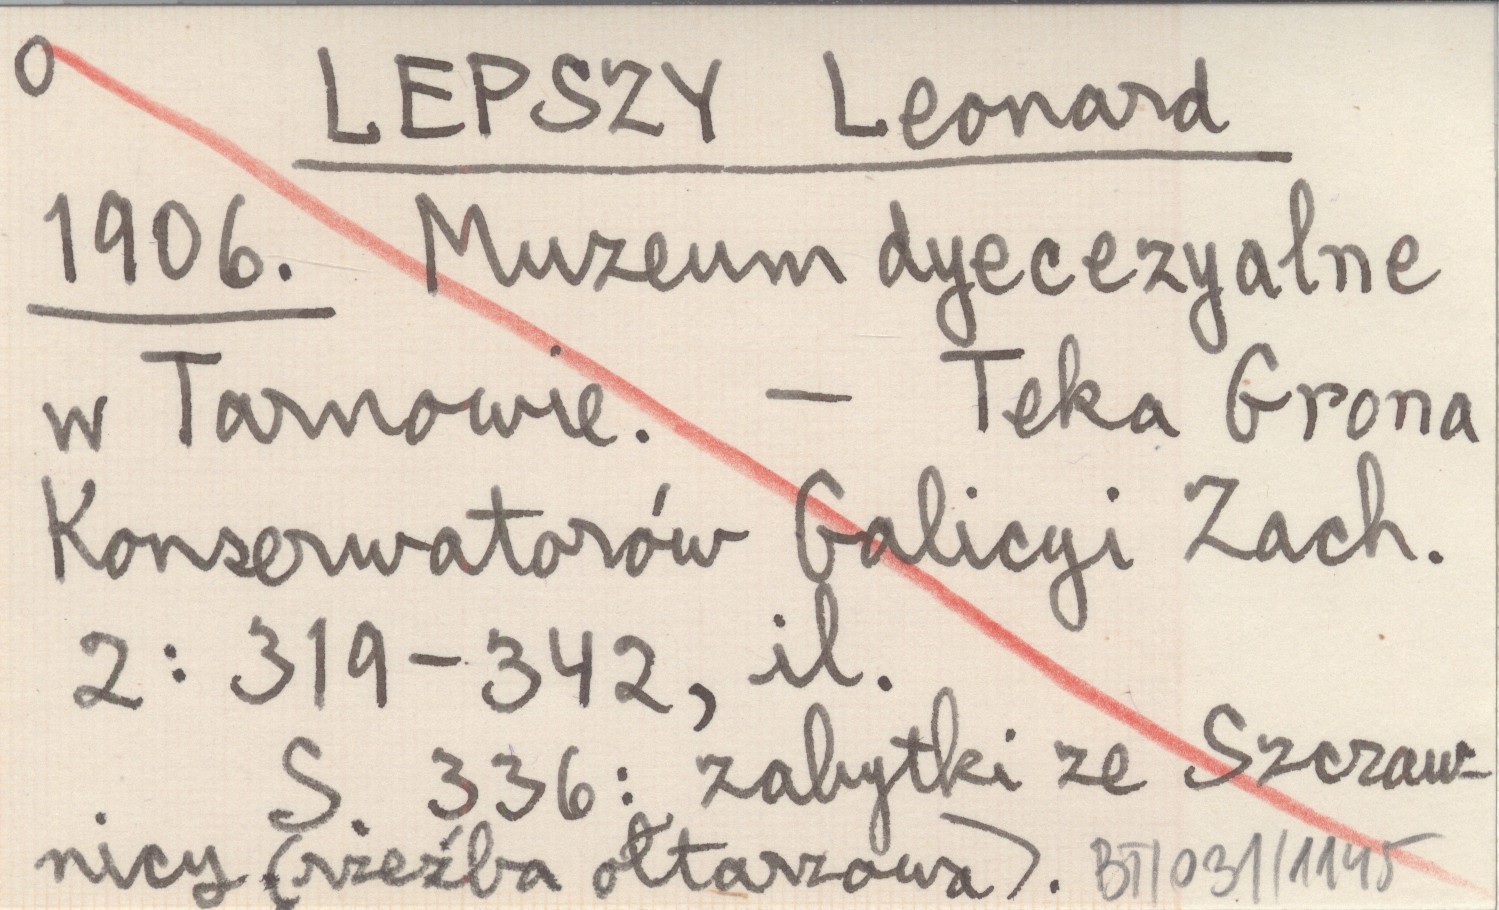 O
LEPSZY Leonard
1906. Muzeum dyecezyalne
w Tarnowie. – Teka Grona
Konserwatorów Galicyi Zach.
2: 319–342, il.
S. 336: zabytki ze Szczaw-
nicy (rzeźba ołtarzowa).
BT/031/1145